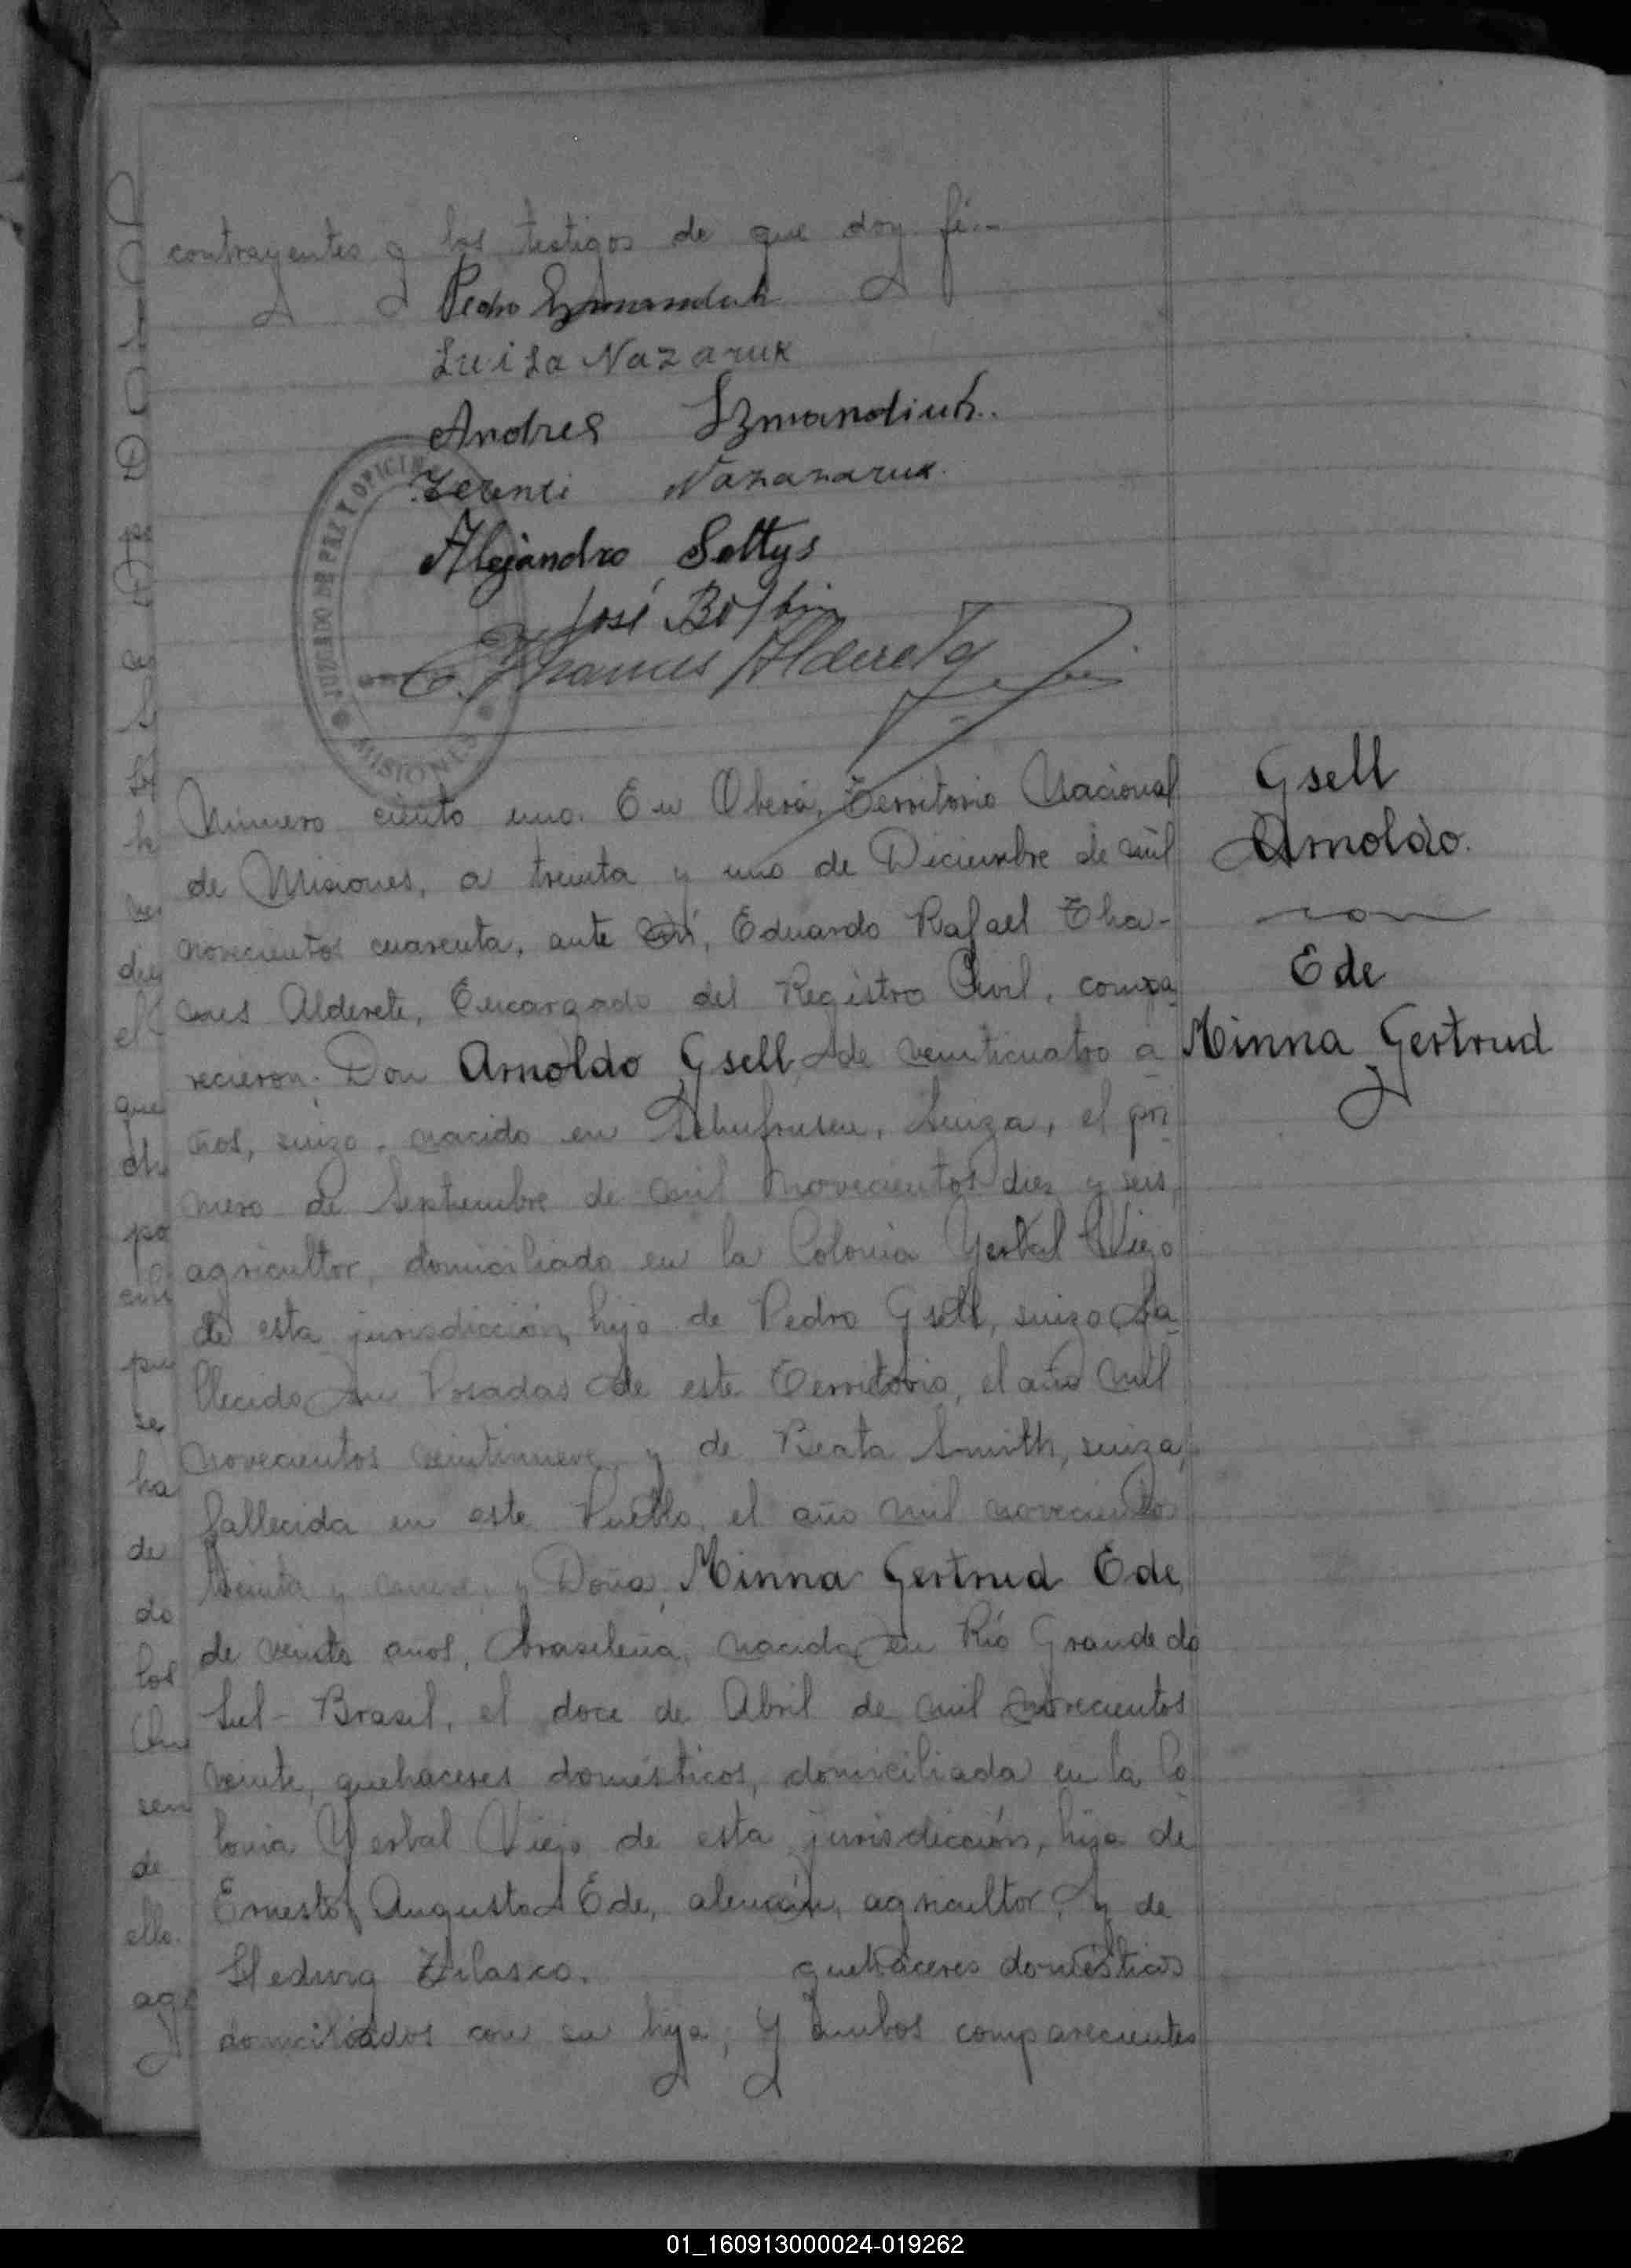 contrayentes y los testigos de que doy fé..-
Pedro
Luisa Nazaruk
Andres Szmandiuk.
Nazaruk
Alejandro Soltys
José
E. Thames Alderete
JUZGADO DE PAZ Y OFICIN
MISIONES
Número ciento uno. En Oberá, Territorio Nacional
de Misiones, a treinta y uno de Diciembre de mil
novecientos cuarenta, ante mí, Eduardo Rafael Tha-
mes Alderete, Encargado del Registro Civil, compa
recieron: Don Arnoldo Gsell, de veinticuatro a
ños, suizo, nacido en Schufrusen, Suiza, el pri
mero de Septiembre de mil novecientos diez y seis,
agricultor, domiciliado en la Colonia Yerbal Viejo
de esta jurisdicción, hijo de Pedro Gsell, suizo, fa
llecido en Posadas de este Territorio, el año mil
novecientos veintinueve, y de Berta Smith, suiza,
fallecida en este Pueblo, el año mil novecientos
treinta y nueve, y Doña Minna Gertrud Ede,
de veinte años, brasileña, nacida en Río Grande do
Sul - Brasil, el doce de Abril de mil novecientos
veinte, quehaceres domésticos, domiciliada en la Co
lonia Yerbal Viejo de esta jurisdicción, hija de
Ernesto Augusto Ede, alemán, agricultor, y de
Hedwig Zilasco. quehaceres domésticos
domiciliados con su hija; y ambos comparecientes
Gsell
Arnoldo.
con
Ede
Minna Gertrud
01_160913000024-019262